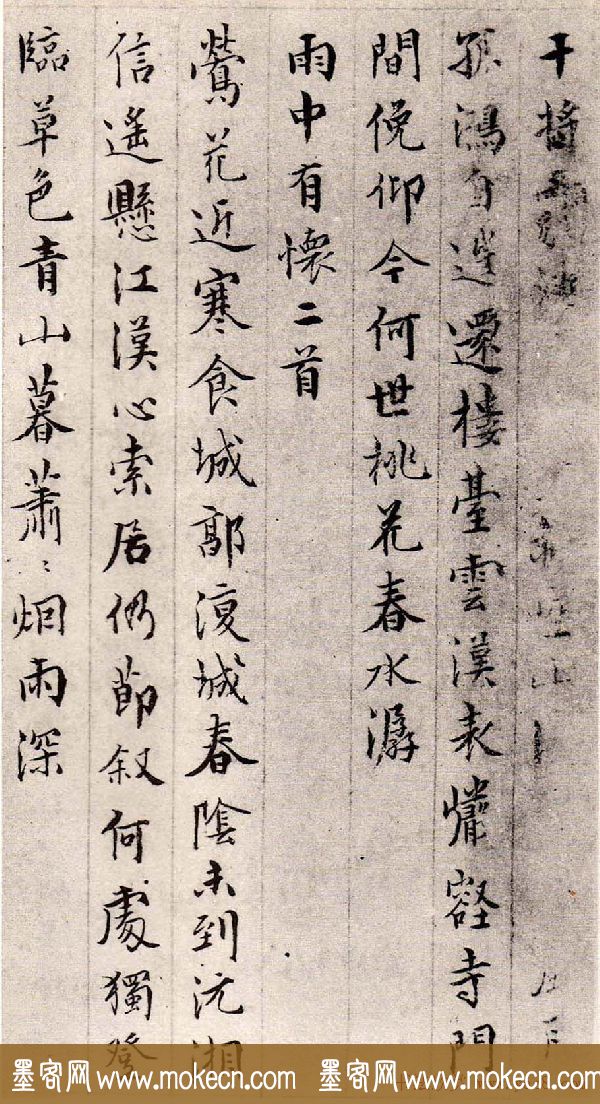 干將
孤鴻自邊還樓臺雲漢表 寺門
間俛仰今何世桃花春水潺
雨中有懷二首
鶯花近寒食城郭復城春陰未到沅湘
信遥懸江漢心索居仍節叙何處獨登
臨草色青山暮蕭〻烟雨深
墨客网 www.mokecn.com 墨客网 www.mokecn.com